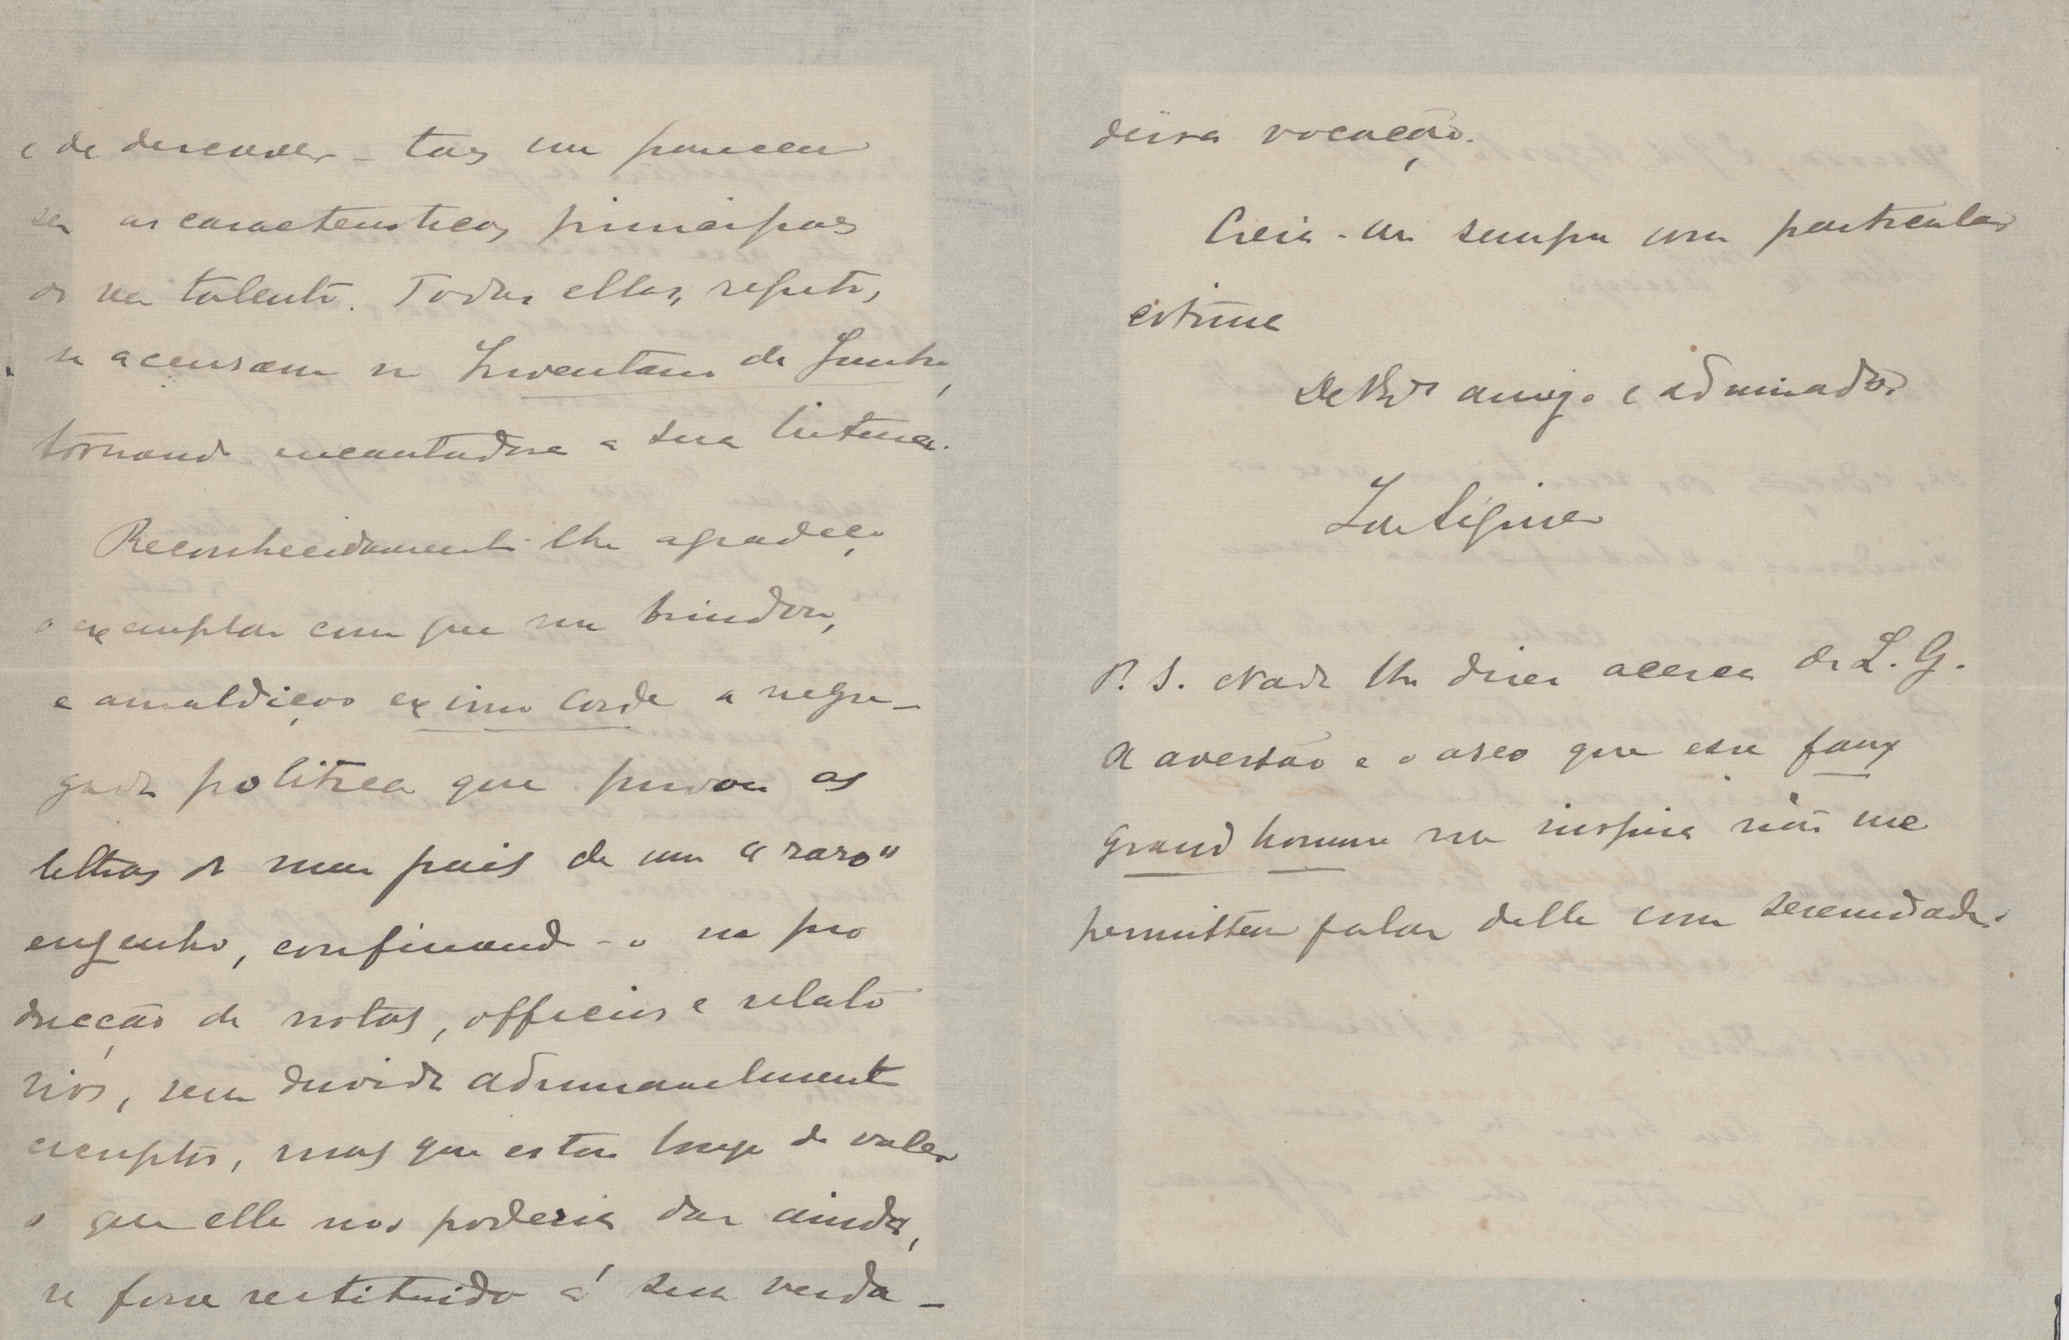 e de descrever - taes me parecem
ser as caracteristicas principaes
do seu talento. Todas ellas, repito,
se accusam no Inventario de Junho,
tornando encantadora a sua leitura.
Reconhecidamente lhe agradeço
o exemplar com que me brindou,
e amaldiçoo ex imo corde a negre-
gada politica que privou as
lettras do meu paiz de um "raro"
engenho, confinando-o na pro
ducção de notas, officios e relato
rios, sem duvida admiravelmente
escriptos, mas que estão longe de valer
o que elle nos poderia dar ainda,
se fosse restituido á sua verda-
deira vocação.
Creia-me sempre com particular
estima
De amigo e admirador
P. S. Nada lhe direi acerca de L. G.
A aversão e o asco que esse faux
grand homme me inspira não me
permittem falar delle com serenidade.